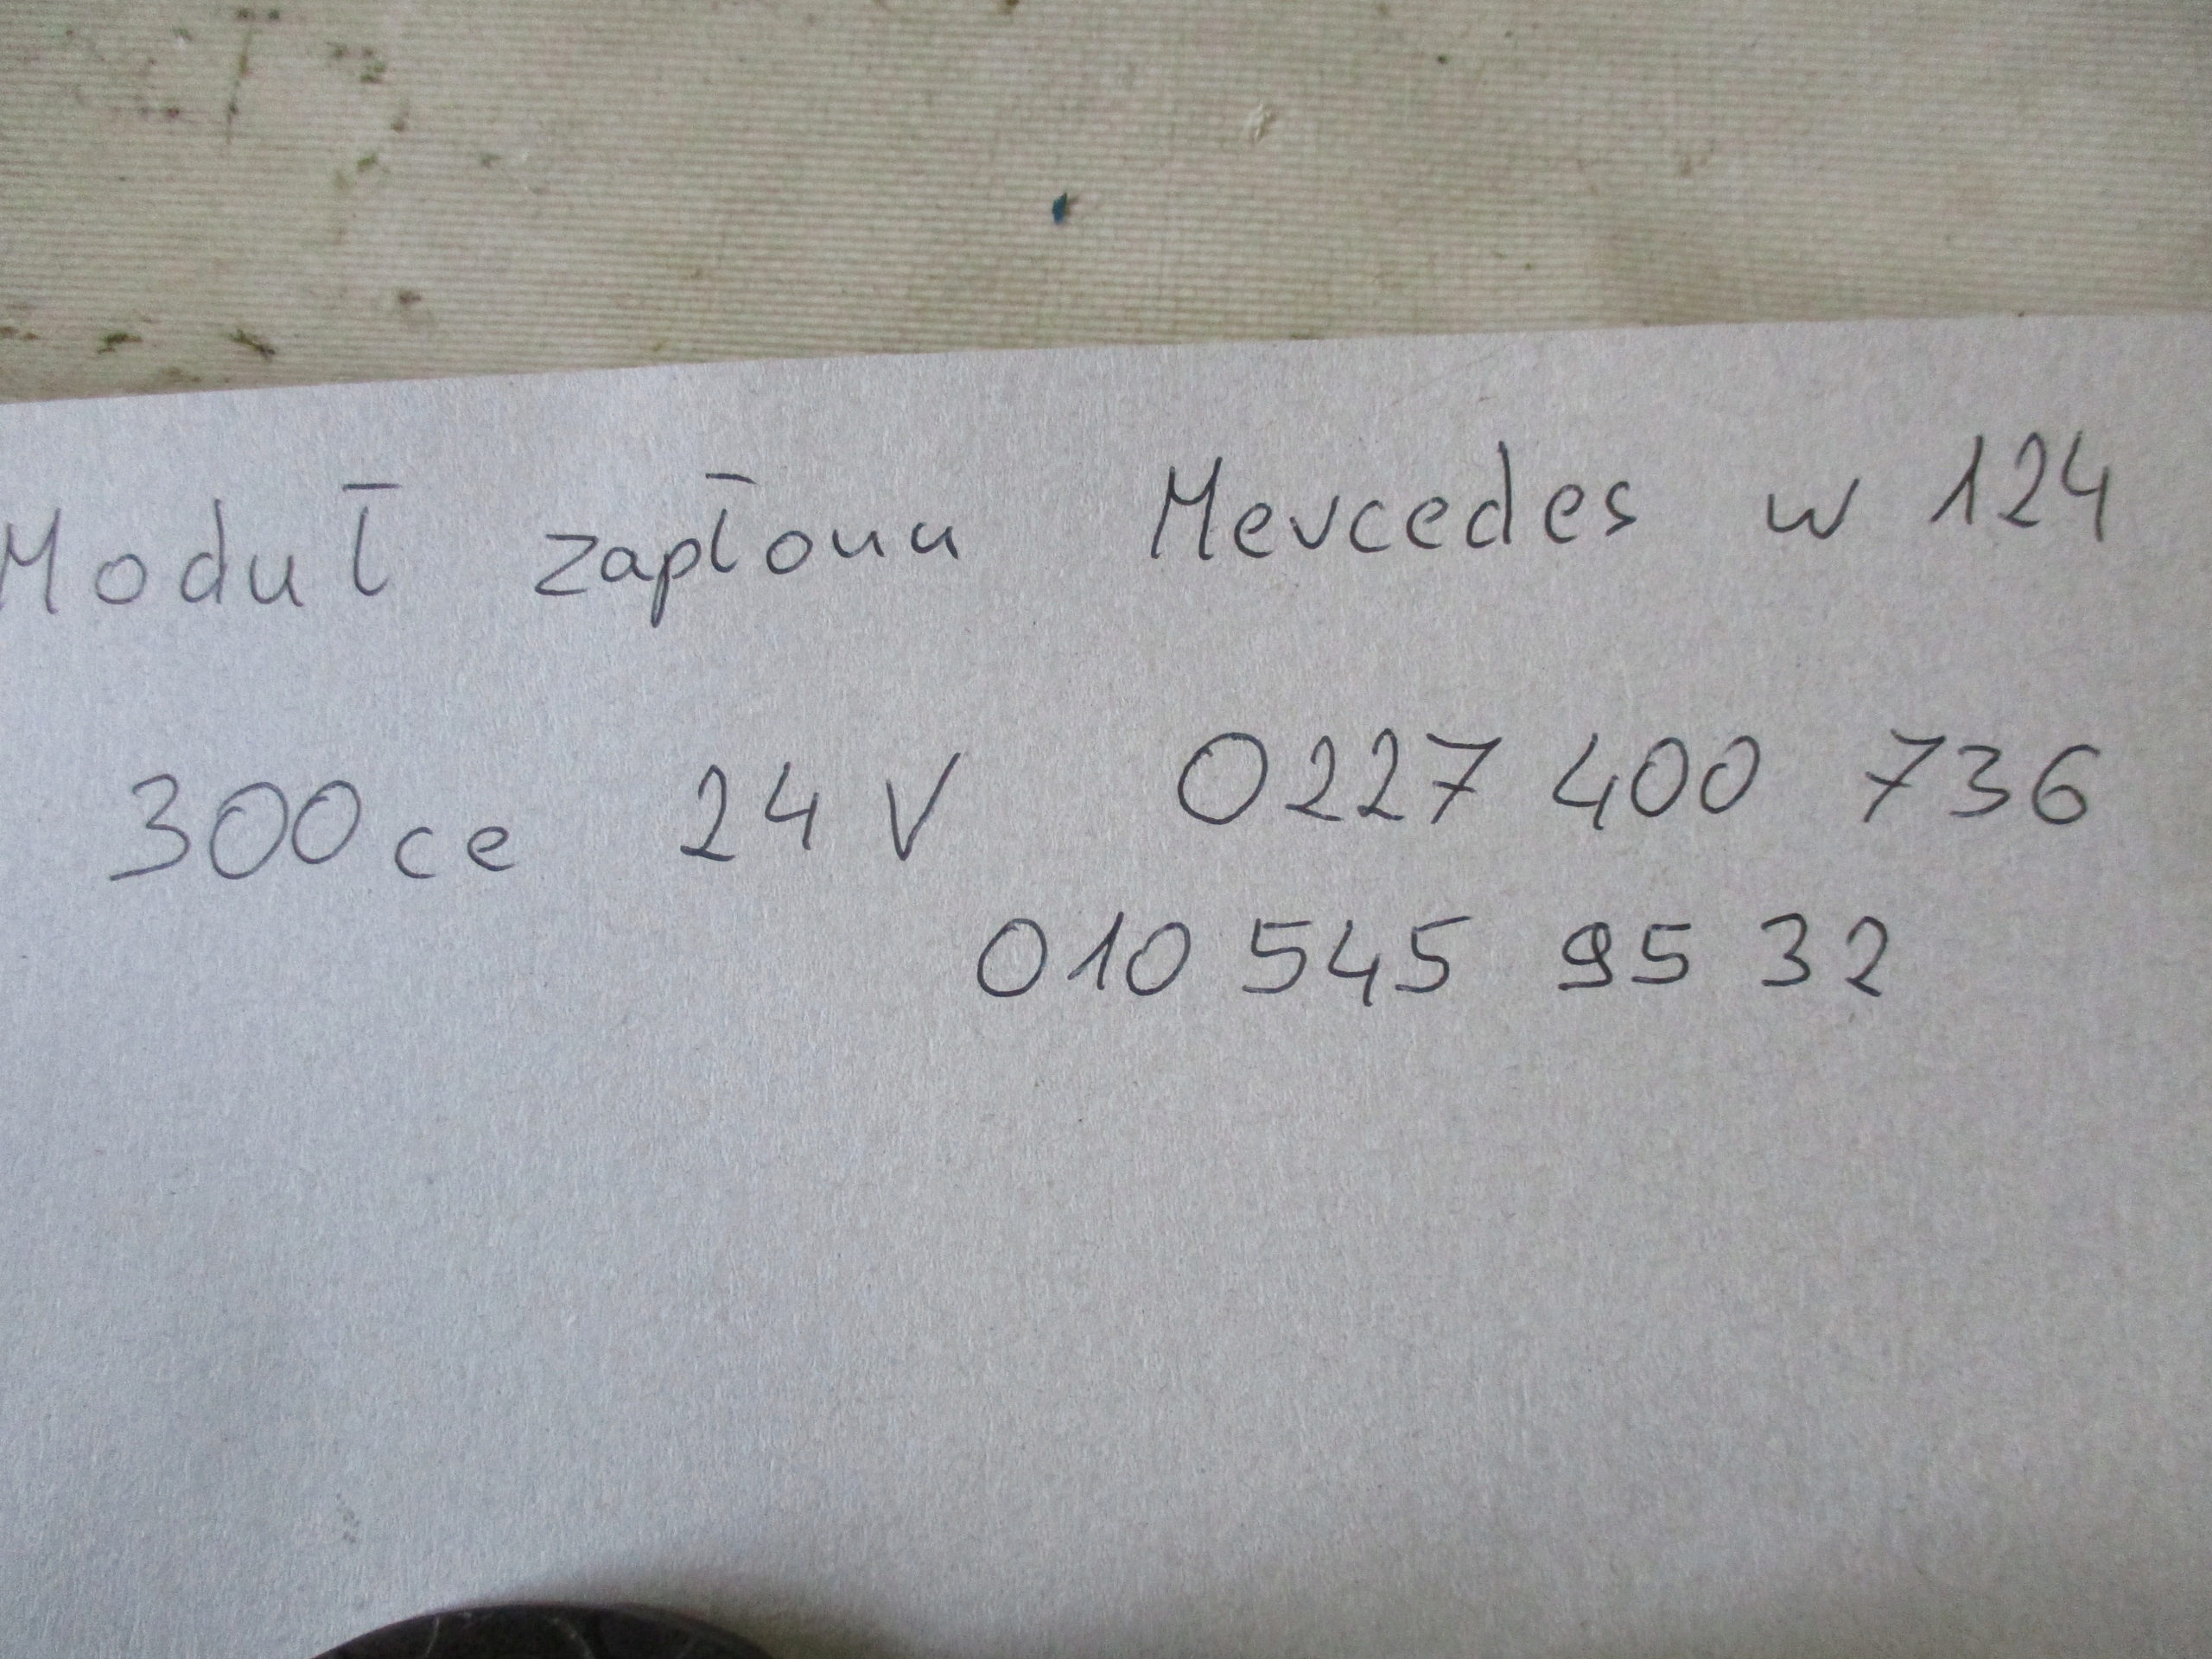 Moduł zapłonu Mercedes w 124
300ce 24V 0227 400 736
010 545 95 32